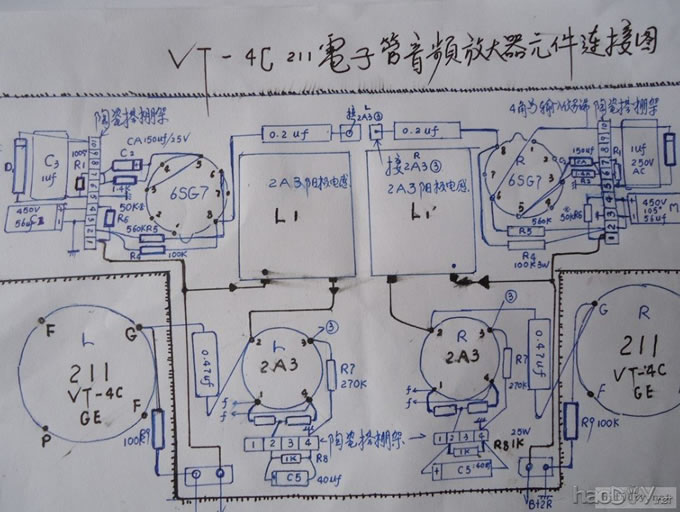 VT-4C 211電子管音頻放大器元件连接图
陶瓷搭棚架
CA150uf/25V
0.2uf
接L2A3③
R
0.2uf
陶瓷搭棚架
C3
1uf
100Ω
R1
C2
1.4K
65G7
50KΩ
R6
450V
56uf
560KR5
R4
100K
2A3阳极电感
L1
接2A3③
2A3阳极电感
L1'
R
65G7
560K
R5
R4
100K3W
150uf
CA
R1
1uf
250V
AC
450V
105°
56uf
M
L
211
VT-4C
GE
F
G
P
F
100K
R9
0.47uf
L
2A3
2
3
1
4
③
R7
270K
f
f
R
2A3
2
3
1
4
③
R7
270K
f
f
0.47uf
R
211
VT-4C
GE
G
F
R9 100K
1 2 3 4
陶瓷搭棚架
1 2 3 4
25W
1K
R8
C5
40uf
R8 1K
1K
C5
B+2R